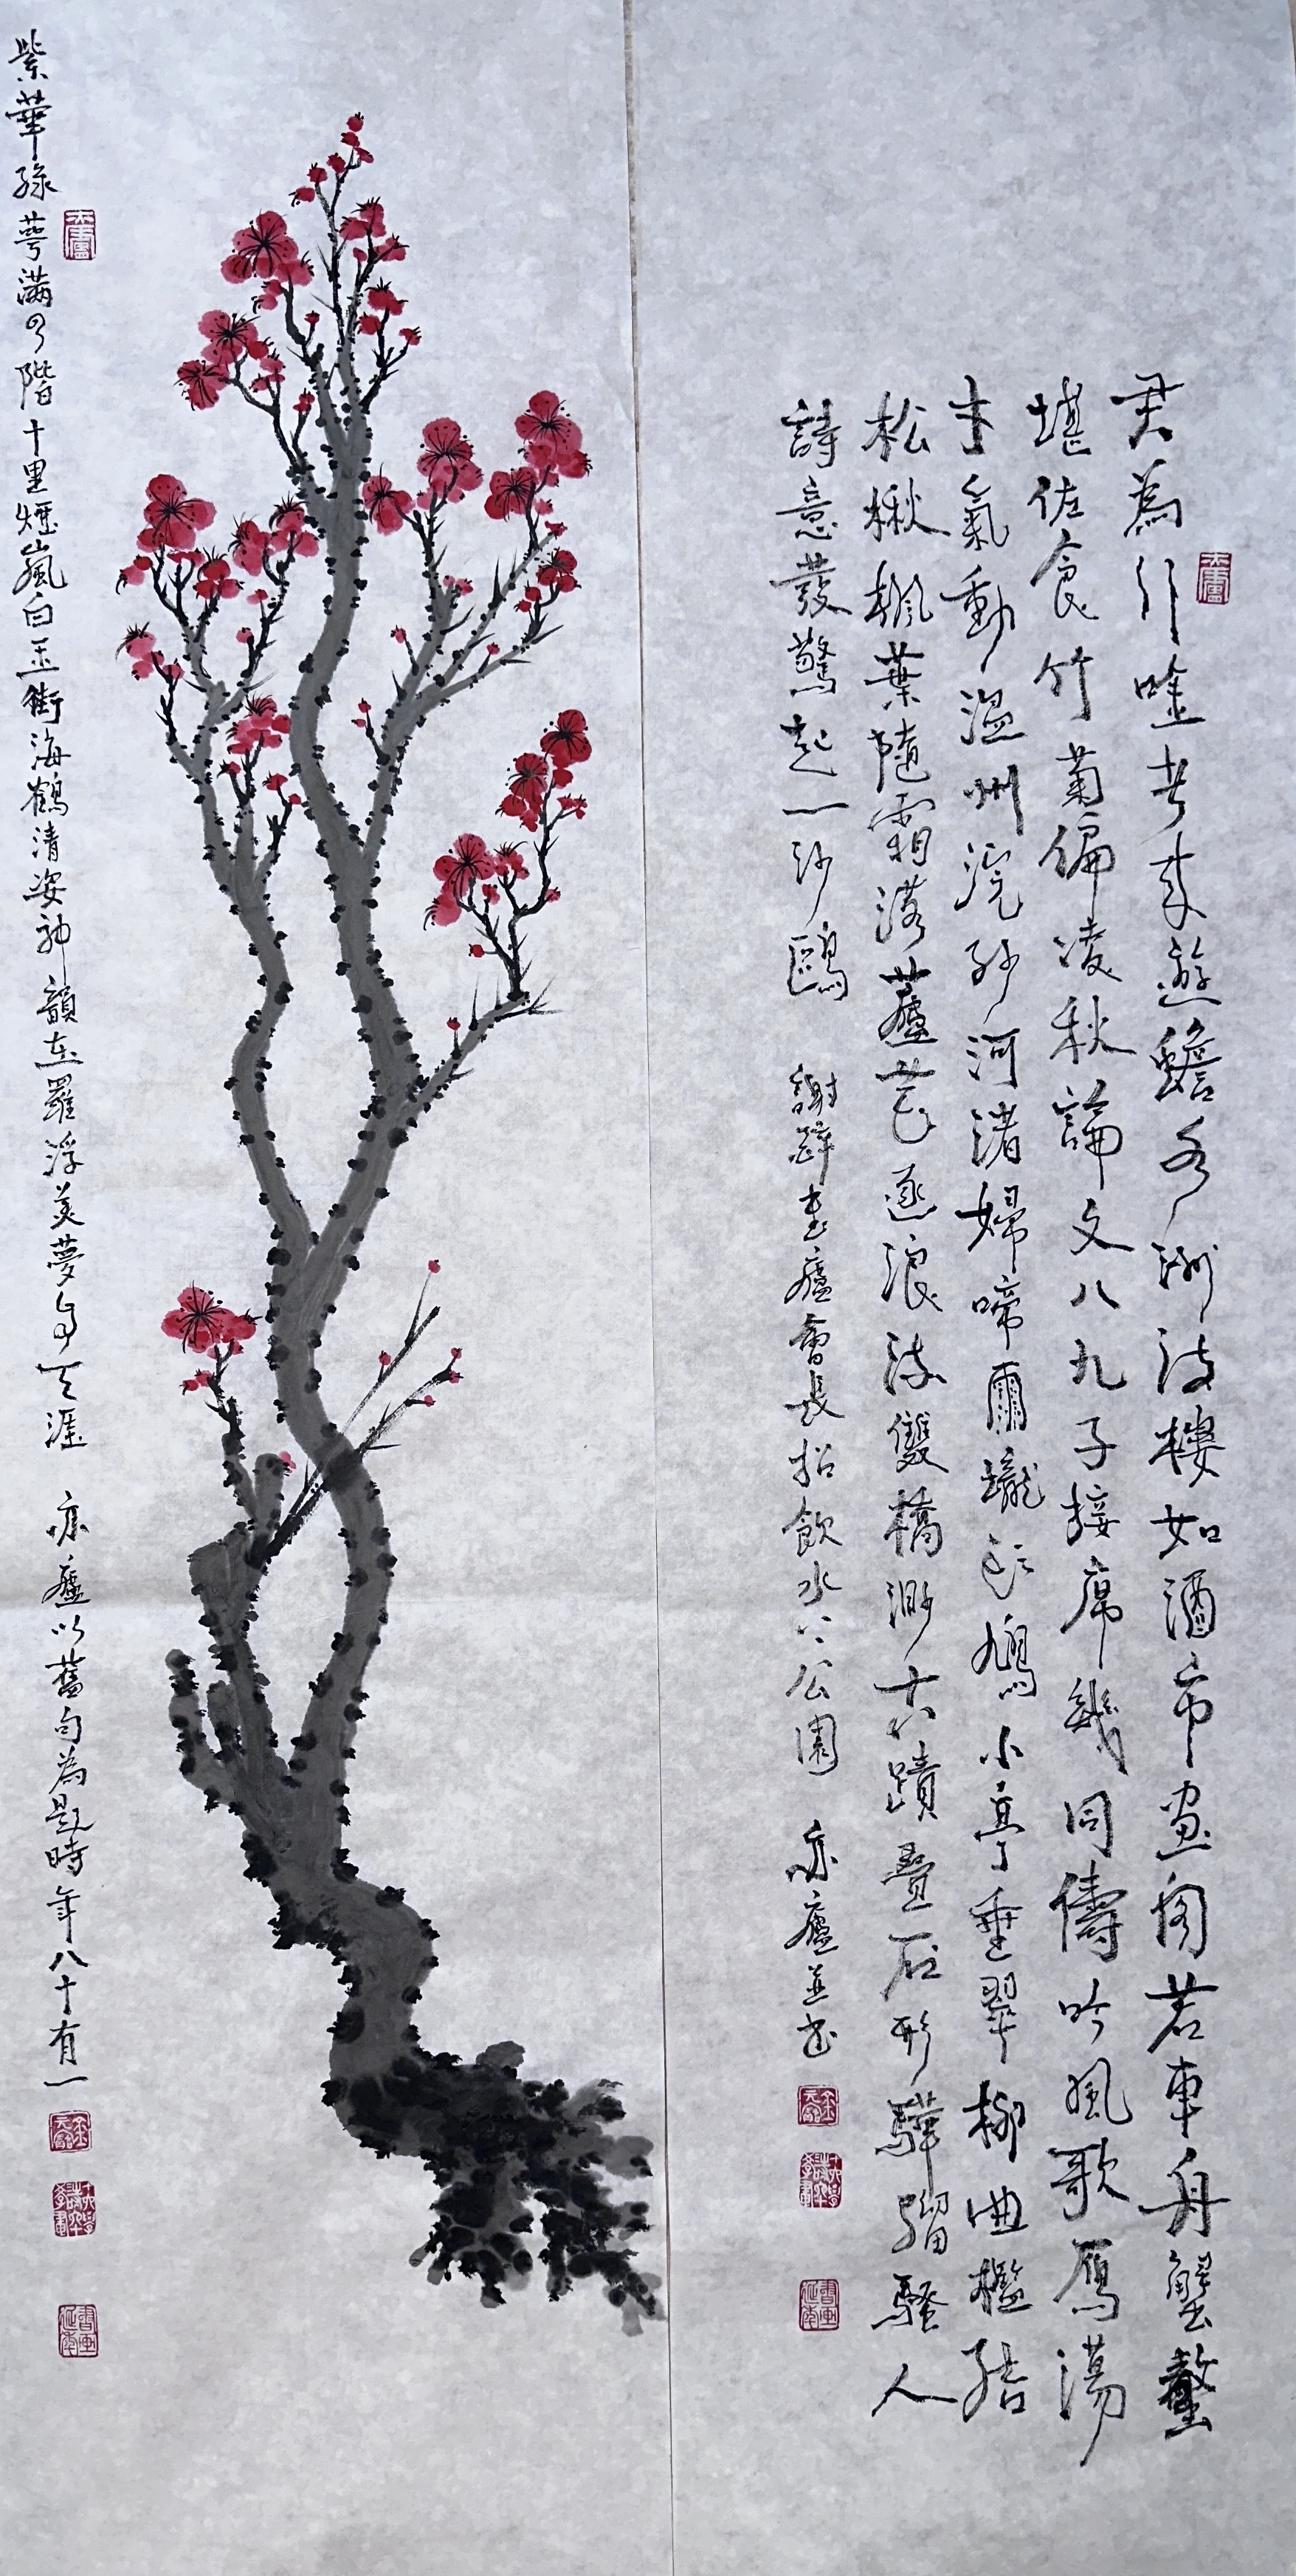 君為引唫昔來遊蟾水洲波樓如酒市畫閣若車舟蟹螯
堪佐食竹菊偏凌秋論文八九子接席幾同儔吟風歌雁蕩
才氣動溫州浣紗河渚婦啼爾瓏玲鳩小亭垂翠柳曲檻結
松楸楓葉隨霜落蘆花逐浪流雙橋渺古蹟疊石形驊騮騷人
詩意發驚起一沙鷗 謝韡春廬會長招飲水心公園 亦廬並書
紫華綠萼滿瑤階十里煙嵐白玉街海鶴清姿神韻在羅浮美夢每天涯 亦廬以舊句為題時年八十有一